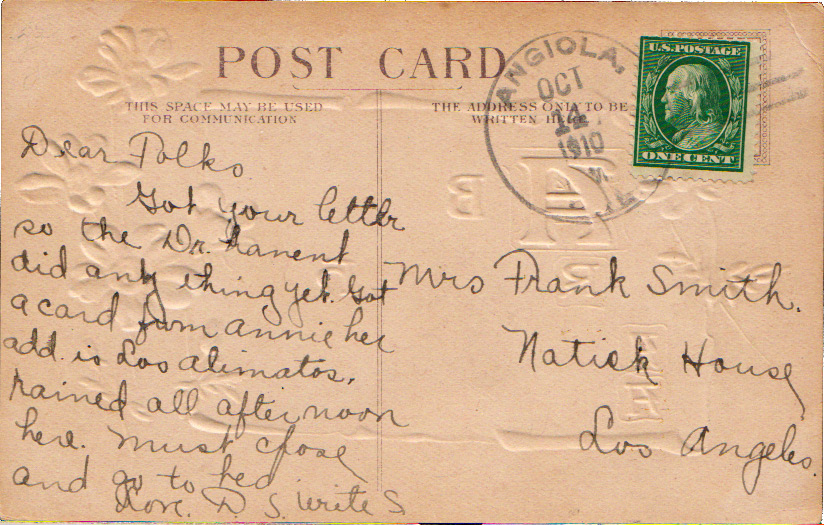 POST CARD
THIS SPACE MAY BE USED
FOR COMMUNICATION
THE ADDRESS ONLY TO BE
WRITTEN HERE
ANGIOLA,
OCT
1910
U.S. POSTAGE
ONE CENT
Dear Folks
Got your letter
so the Dr. hanent
did any thing yet. Got
a card from annie her
add. is Los alimatos.
rained all afternoon
here. must close
and go to bed
Love. D. S. write S
Mrs Frank Smith.
Natick House
Los Angeles.